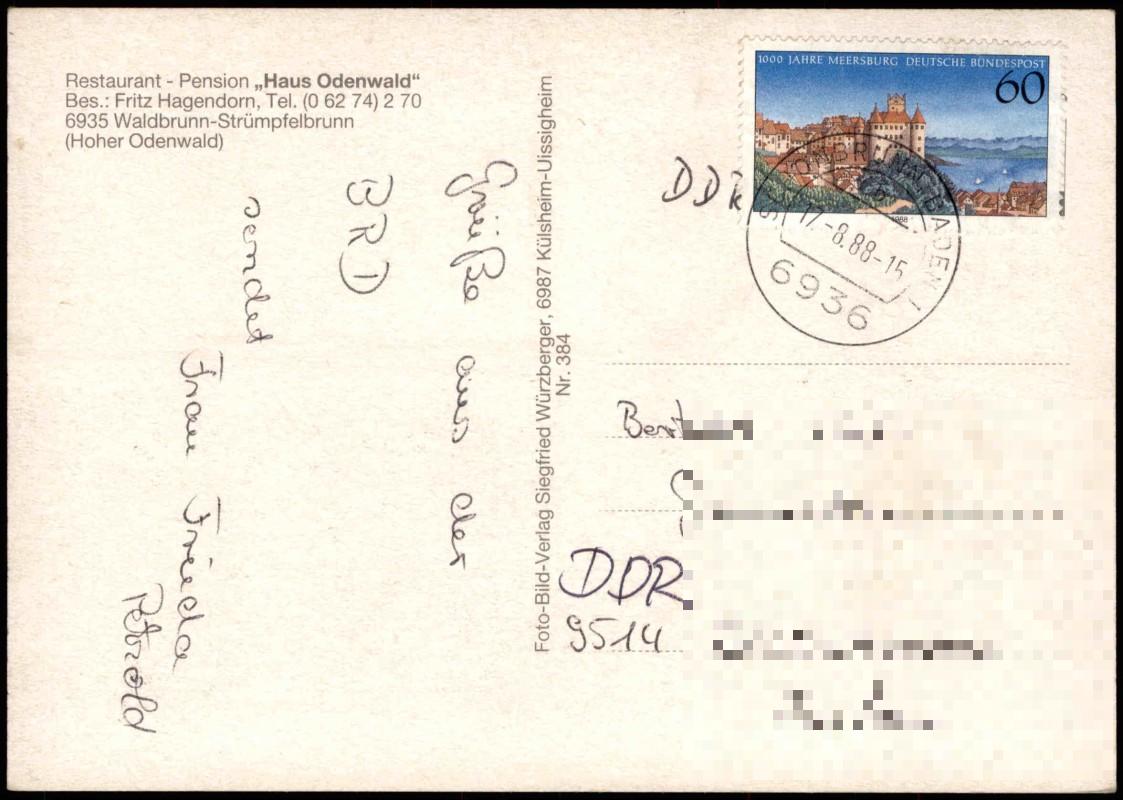 Restaurant - Pension „Haus Odenwald“
Bes.: Fritz Hagendorn, Tel. (0 62 74) 2 70
6935 Waldbrunn-Strümpfelbrunn
(Hoher Odenwald)
Grüße aus der
BRD
sendet
Frau Frieda
Petzold
Foto-Bild-Verlag Siegfried Würzberger, 6987 Külsheim-Uissigheim
Nr. 384
1000 JAHRE MEERSBURG DEUTSCHE BUNDESPOST
60
1988
17.-8.88-15
6936
DDR
DDR
9514